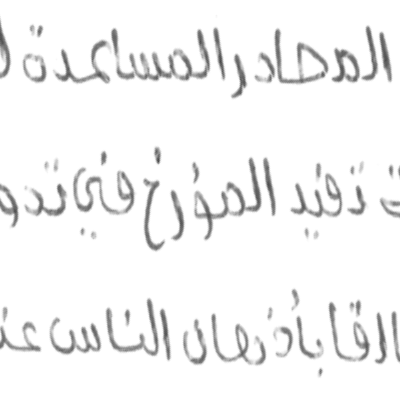 المصادر المساعدة
تفيد المؤرخ في تدو
بأذهان الناس عند